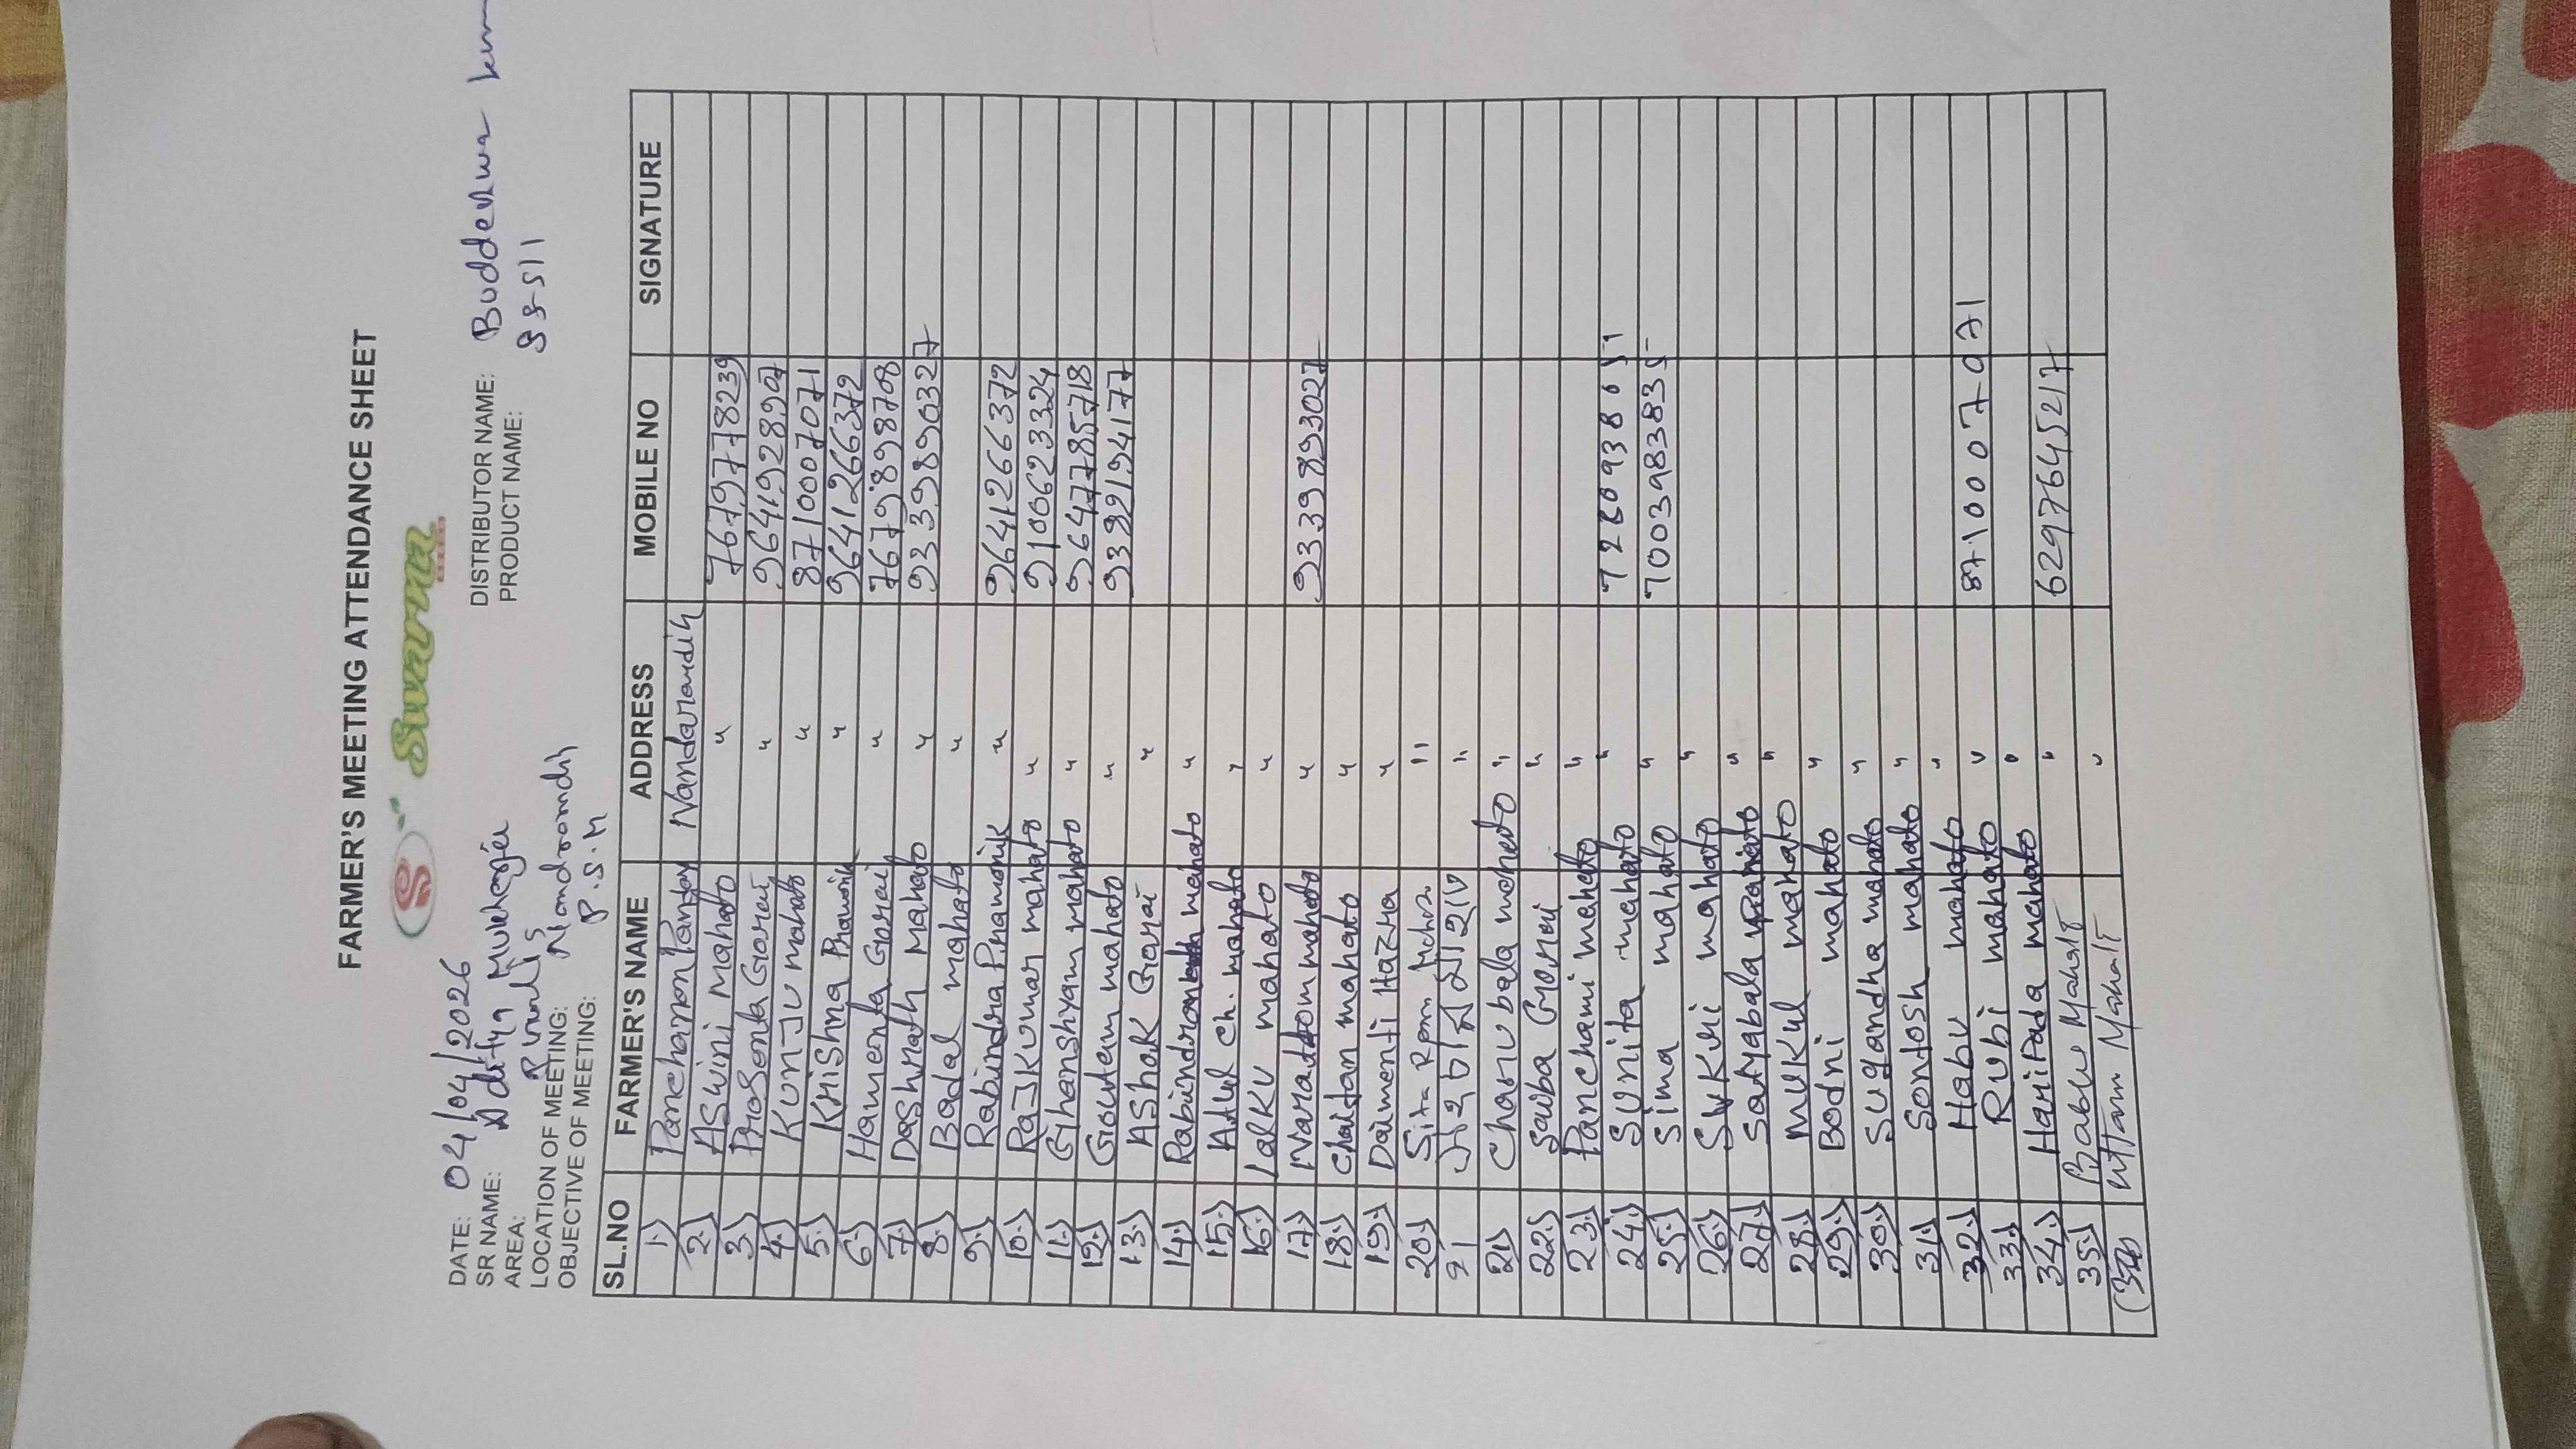 FARMER'S MEETING ATTENDANCE SHEET
S Suvarna
DATE: 04/04/2026
SR NAME: Aditya Mukherjee
AREA:
LOCATION OF MEETING: Nandaramdih
OBJECTIVE OF MEETING: P.S.M
DISTRIBUTOR NAME: Buddeshwar
PRODUCT NAME:
SL.NO FARMER'S NAME ADDRESS MOBILE NO SIGNATURE
1.) Panchanan Panday Nandaramdih
2.) Aswini Mahato " 7679778239
3.) Prosenta Gorai " 9641928907
4.) Kunju mahato " 8710007071
5.) Krishna Pramanik " 9641266372
6.) Hamenta Gorai " 7679898708
7.) Dashrath Mahato " 9339890327
8.) Badal mahato "
9.) Rabindra Pramanik " 9641266372
10.) Rajkumar mahato " 9100623324
11.) Ghanshyam mahato " 9647785718
12.) Goutam mahato " 9382194177
13.) Ashok Gorai "
14.) Rabindranath mahato "
15.) Atul ch. mahato "
16.) Lalku mahato "
17.) Narattom mahato " 9339893027
18.) Chaitan mahato "
19.) Daimenti Hazra "
20.) Sita Ram "
21
21) Charubala mahato "
22.) Saiba Gorai "
23.) Panchami mahato "
24.) Sunita mahato " 7260938051
25.) Sima mahato " 7003983835
26.) Sukri mahato "
27.) Satyabala mahato "
28.) Mukul mahato "
29.) Bodni mahato "
30.) Sugandha mahato "
31.) Sontosh mahato "
32.) Habu mahato " 8710007071
33.) Rubi mahato "
34.) Haripada mahato " 6297645217
35.) Bablu Mahali
Uttam Mahali "